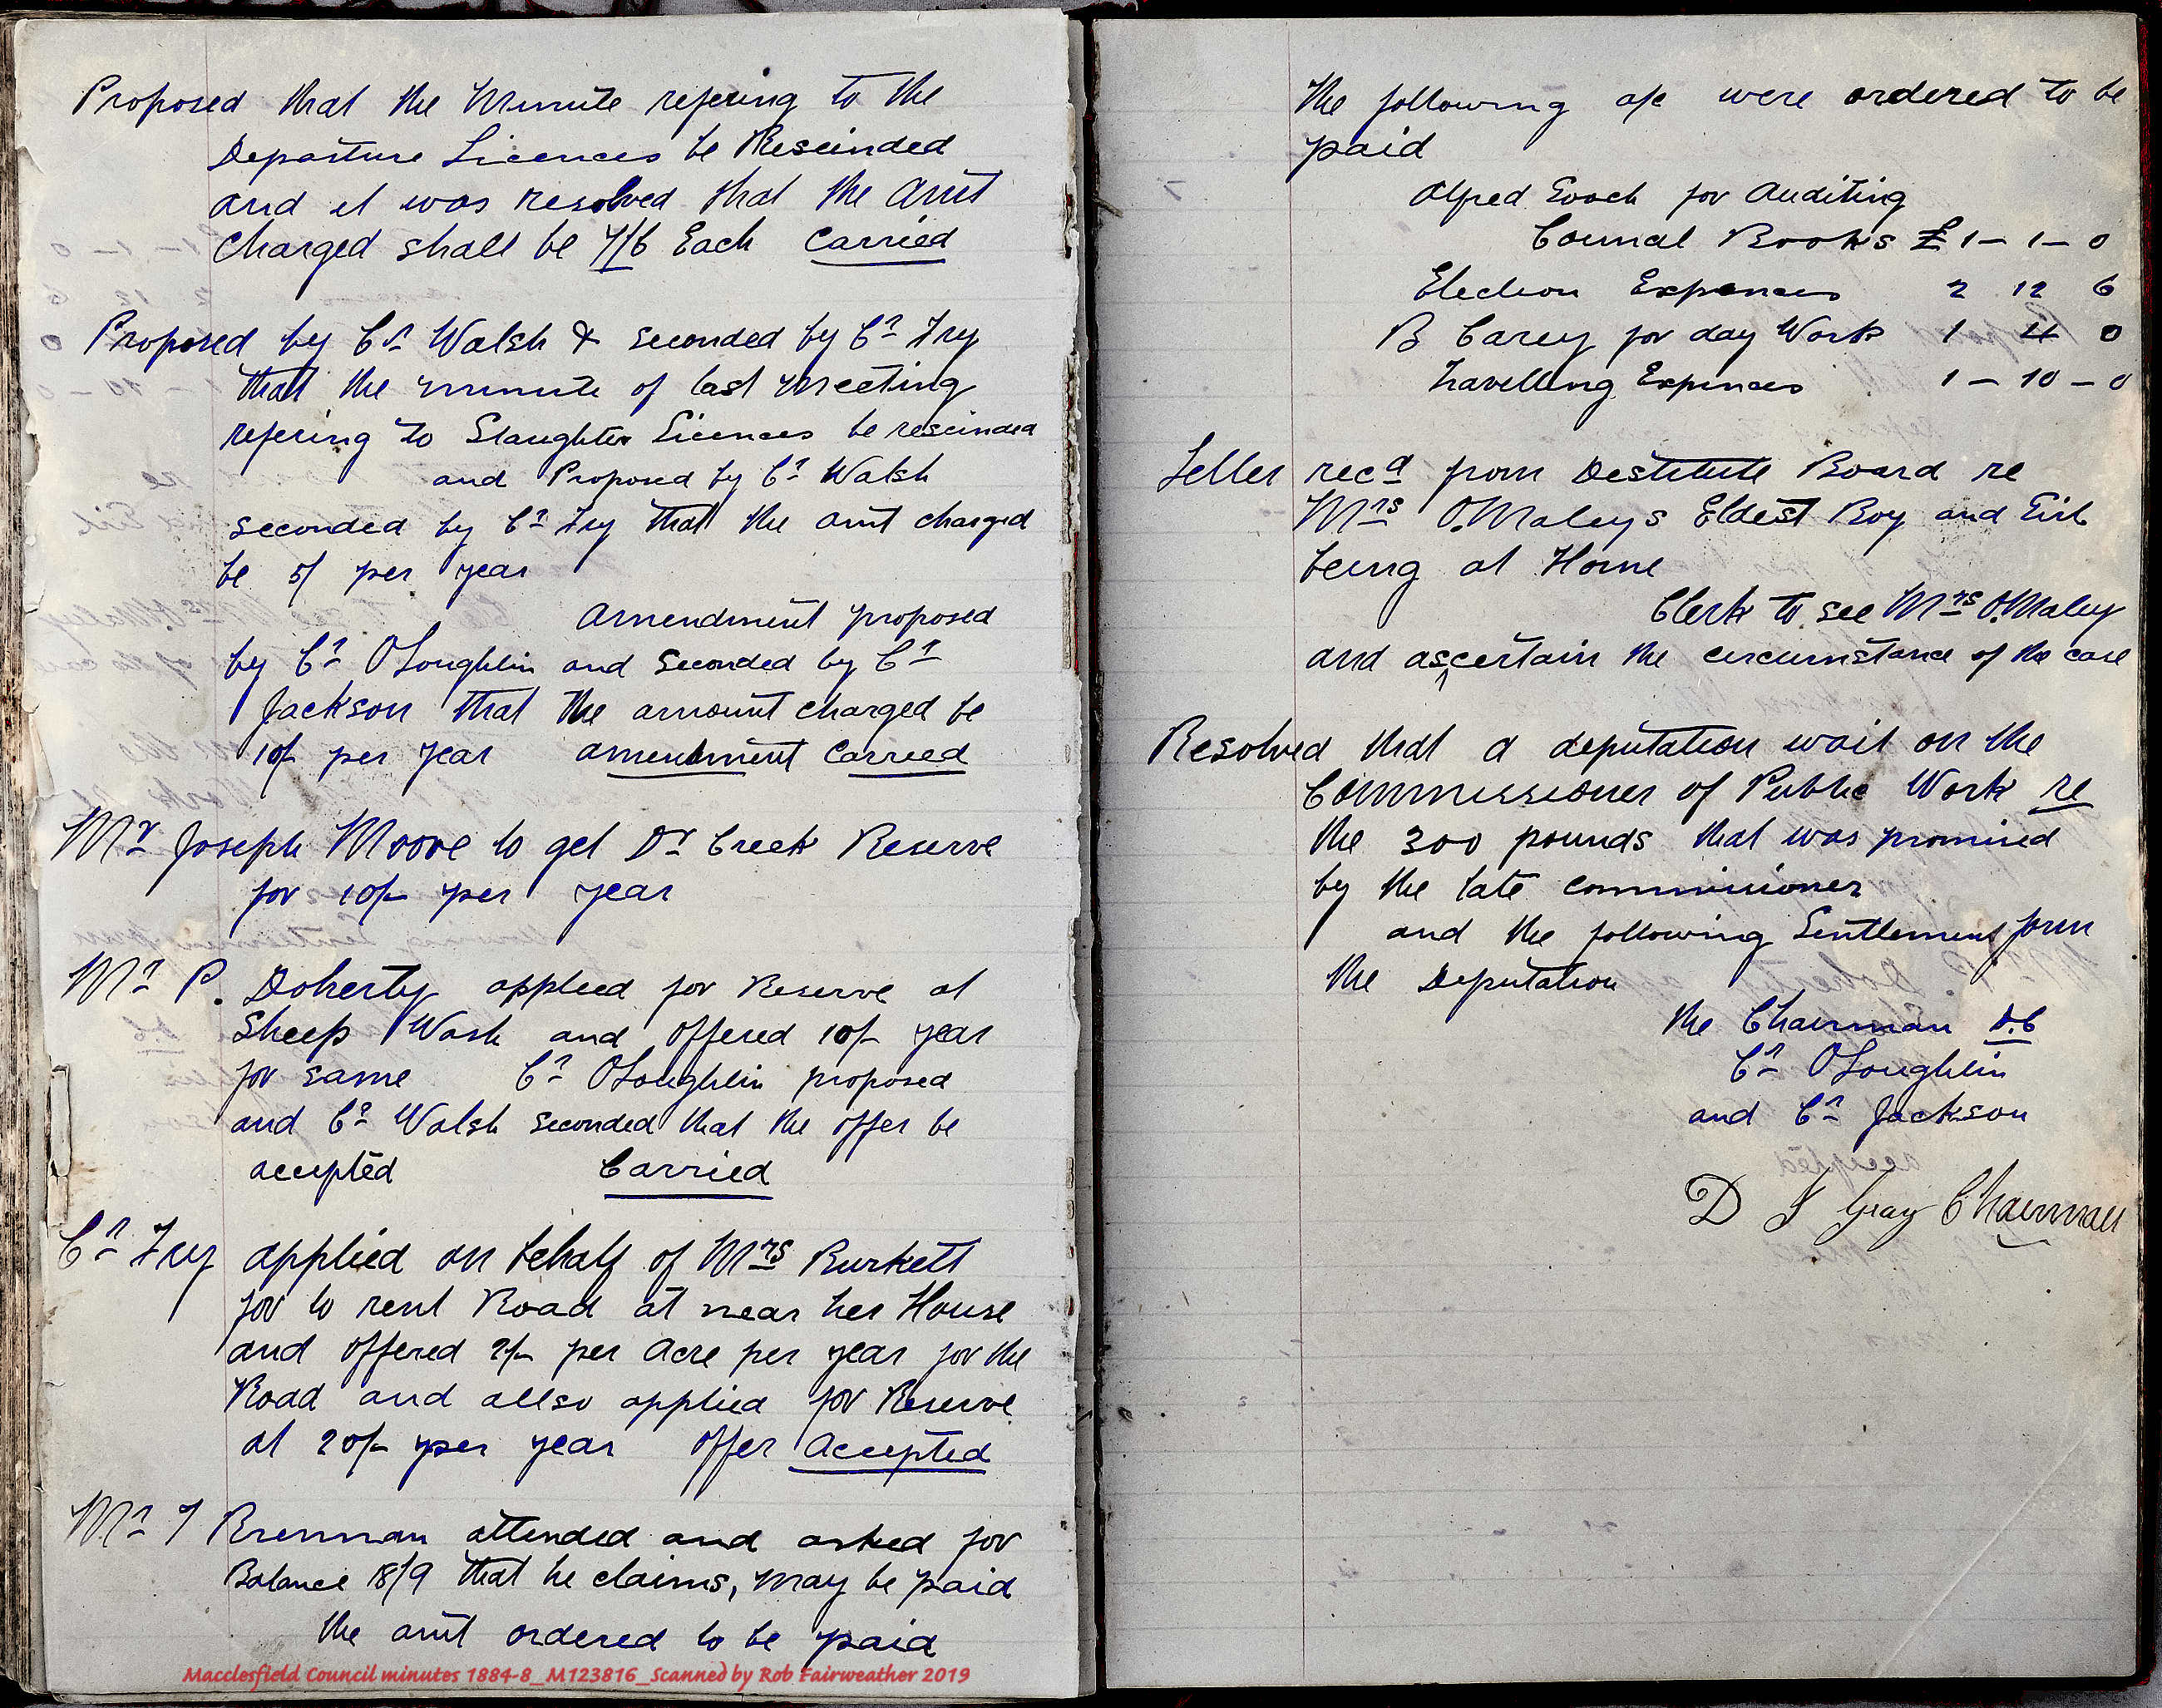 Proposed that the Minute refering to the
Departure Licences be Rescinded
and it was resolved that the amt
charged shall be 7/6 Each Carried
Proposed by Cr Walsh & seconded by Cr Fry
that the minute of last meeting
refering to Slaughter Licences be rescinded
and Proposed by Cr Walsh
seconded by Cr Fry that the amt charged
be 5/ per year
amendment proposed
by Cr OLoughlin and seconded by Cr
Jackson that the amount charged be
10/- per year amendment Carried
Mr Joseph Moore to get Dr Creek Reserve
for 10/- per year
Mr P. Doherty applied for Reserve at
Sheep Wash and offered 10/- year
for same Cr OLoughlin proposed
and Cr Walsh seconded that the offer be
accepted Carried
Cr Fry applied on behalf of Mrs Burkett
for to rent Road at near her House
and offered 2/- per acre per year for the
Road and allso applied for Reserve
at 20/- per year offer accepted
Mr J Brennan attended and asked for
Balance 18/9 that he claims, may be paid
the amt ordered to be paid
Macclesfield Council minutes 1884-8_M123816_Scanned by Rob Fairweather 2019
the following a/c were ordered to be
paid
Alfred Gooch for Auditing
Council Books £1-1-0
Election Expences 2 12 6
B Carey for day Work 1 4 0
Travelling Expences 1-10-0
Letter recd from Destitute Board re
Mrs O.Maleys Eldest Boy and Girl
being at Home
Clerk to see Mrs O.Maley
and ascertain the circumstance of the case
Resolved that a deputation wait on the
Commissioner of Public Work re
the 300 pounds that was promised
by the late commissioner
and the following Gentlemens form
the Deputation
the Chairman D.C
Cr OLoughlin
and Cr Jackson
D F Gray Chairman